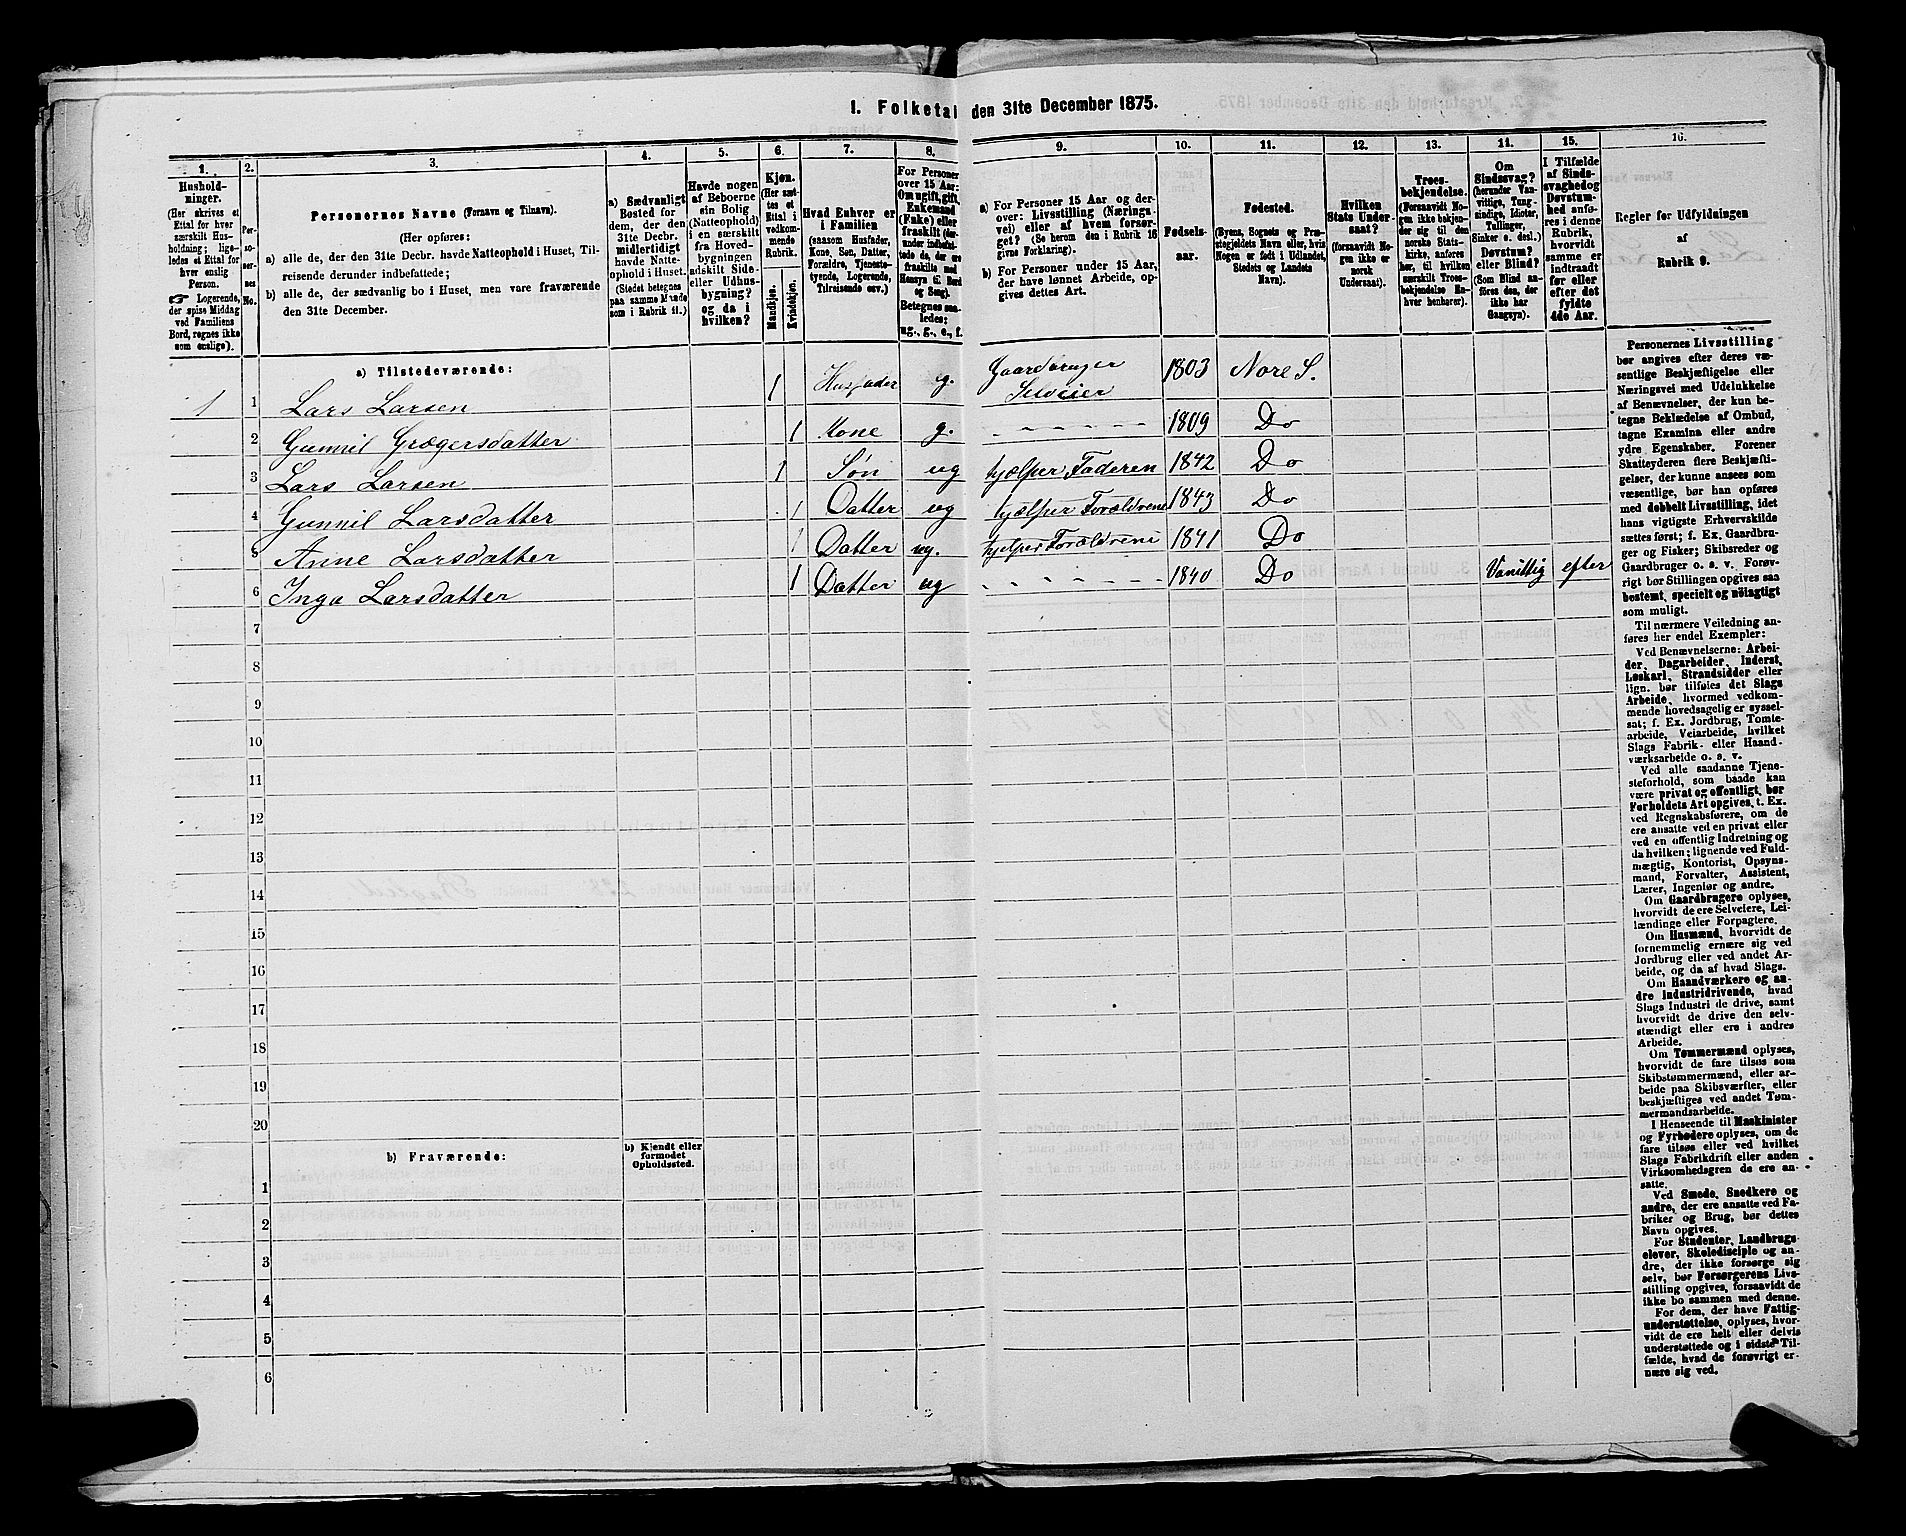 I. Folketal den 31te December 1875.
1. 2. 3. 4. 5. 6. 7. 8. 9. 10. 11. 12. 13. 14. 15. 16.
Hushold-
ninger.
(Her skrives et
Ettal for hver
særskilt Hus-
holdning; lige-
ledes et Ettal for
hver enslig
Person.
☞ Logerende,
der spise Middag
ved Familiens
Bord, regnes ikke
som enslige).
Per-
so-
ner-
nes
No.
Personernes Navne (Fornavn og Tilnavn).
(Her opføres:
a) alle de, der den 31te Decbr. havde Natteophold i Huset, Til-
reisende derunder indbefattede;
b) alle de, der sædvanlig bo i Huset, men vare fraværende
den 31te December.
a) Sædvanligt
Bosted for
dem, der den
31te Decbr.
midlertidigt
havde Natte-
ophold i Huset.
(Stedet betegnes
paa samme Maade
som i Rubrik 11.)
Havde nogen
af Beboerne
sin Bolig
(Natteophold)
i en særskilt
fra Hoved-
bygningen
adskilt Side-
eller Udhus-
bygning?
og da i
hvilken?
Kjøn.
(Her sæt-
tes et
Ettal i
vedkom-
mende
Rubrik.
Mandkjøn.
Kvindekjøn.
Hvad Enhver er
i Familien
(saasom Husfader,
Kone, Søn, Datter,
Forældre, Tjeneste-
tyende, Logerende,
Tilreisende osv.)
For Personer
over 15 Aar:
Om ugift, gift,
Enkemand
(Enke) eller
fraskilt
Betegnes saa-
ledes:
ug., g., e., f.
a) For Personer 15 Aar og der-
over: Livsstilling (Nærings-
vei) eller af hvem forsør-
get? (Se herom den i Rubrik 16
givne Forklaring).
b) For Personer under 15 Aar,
der have lønnet Arbeide, op-
gives dettes Art.
Fødsels-
aar.
Fødested.
(Byens, Sognets og Præ-
stegjeldets Navn eller, hvis
Nogen er født i Udlandet,
Stedets og Landets
Navn).
Hvilken
Stats Under-
saat?
(forsaavidt No-
gen ikke er
norsk
Undersaat).
Troes-
bekjendelse.
(Forsaavidt No-
gen ikke bekjen-
der sig til den
norske Stats-
kirke, anføres
her, til hvilken
særskilt Troes-
bekjendelse En-
hver henhører).
Om
Sindssvag?
(herunder Van-
vittige, Tung-
sindige, Idioter,
Tullinger,
Sinker o. desl.)
Døvstum?
eller Blind?
(Som Blind an-
føres den, der
ikke har
Gangsyn).
I Tilfælde
af Sinds-
svaghed og
Døvstum-
hed anfø-
res i denne
Rubrik,
hvorvidt
samme er
indtraadt
før eller
efter det
fyldte
4de Aar.
Regler for Udfyldningen
af
Rubrik 9.
a) Tilstedeværende:
1 1 Lars Larsen 1 Husfader g. Gaardbruger Selveier 1803 Nore S.
2 Gunnil Grøgersdatter 1 Kone g. - - - - - - 1809 Do
3 Lars Larsen 1 Søn ug hjælper Faderen 1842 Do
4 Gunnil Larsdatter 1 Datter ug hjælper Forældrene 1843 Do
5 Anne Larsdatter 1 Datter ug. hjelper Forældrene 1841 Do
6 Inga Larsdatter 1 Datter ug - - - - - - 1840 Do Vanvittig efter
7
8
9
10
11
12
13
14
15
16
17
18
19
20
b) Fraværende:
b) Kjendt eller
formodet
Opholdssted.
1
2
3
4
5
6
Personernes Livsstilling
bør angives efter deres væ-
sentlige Beskjæftigelse eller
Næringsvei med Udelukkelse
af Benævnelser, der kun be-
tegne Beklædelse af Ombud,
tagne Examina eller andre
ydre Egenskaber. Forener
Skatteyderen flere Beskjæfti-
gelser, der kunne ansees som
væsentlige, bør han opføres
med dobbelt Livsstilling, idet
hans vigtigste Erhvervskilde
sættes først; f. Ex. Gaardbru-
ger og Fisker; Skibsreder og
Gaardbruger o. s. v. Forøv-
rigt bør Stillingen opgives saa
bestemt, specielt og nøiagtigt
som muligt.
Til nærmere Veiledning an-
føres her endel Exempler:
Ved Benævnelserne: Arbei-
der, Dagarbeider, Inderst,
Løskarl, Strandsidder eller
lign. bør tilføies det Slags
Arbeide, hvormed vedkom-
mende hovedsagelig er syssel-
sat; f. Ex. Jordbrug, Tomte-
arbeide, Veiarbeide, hvilket
Slags Fabrik- eller Haand-
værksarbeide o. s. v.
Ved alle saadanne Tjene-
steforhold, som baade kan
være privat og offentligt, bør
Forholdets Art opgives, t. Ex.
ved Regnskabsførere, om de
ere ansatte ved en privat eller
ved en offentlig Indretning og
da hvilken; lignende ved Fuld-
mægtig, Kontorist, Opsyns-
mand, Forvalter, Assistent,
Lærer, Ingeniør og andre.
Om Gaardbrugere oplyses,
hvorvidt de ere Selveiere, Lei-
lændinge eller Forpagtere.
Om Husmænd, hvorvidt de
fornemmelig ernære sig ved
Jordbrug eller ved andet Ar-
beide, og da af hvad Slags.
Om Haandværkere og an-
dre Industridrivende, hvad
Slags Industri de drive, samt
hvorvidt de drive den selv-
stændigt eller ere i andres
Arbeide.
Om Tømmermænd oplyses,
hvorvidt de fare tilsøs som
Skibstømmermænd, eller ar-
beide paa Skibsværfter, eller
beskjæftiges ved andet Tøm-
mermandsarbeide.
I Henseende til Maskinister
og Fyrbødere oplyses, om de
fare tilsøs eller ved hvilket
Slags Fabrikdrift eller anden
Virksomhedsgren de ere an-
satte.
Ved Smede, Snedkere og
andre, der ere ansatte ved Fa-
briker og Brug, bør dettes
Navn opgives.
For Studenter, Landbrugs-
elever, Skoledisciple og an-
dre, der ikke forsørge sig
selv, bør Forsørgerens Livs-
stilling opgives, forsaavidt de
ikke bo sammen med denne.
For dem, der have Fattig-
understøttelse, oplyses, hvor-
vidt de ere helt eller delvis
understøttede og i sidste Til-
fælde, hvad de forøvrigt er-
nære sig ved.